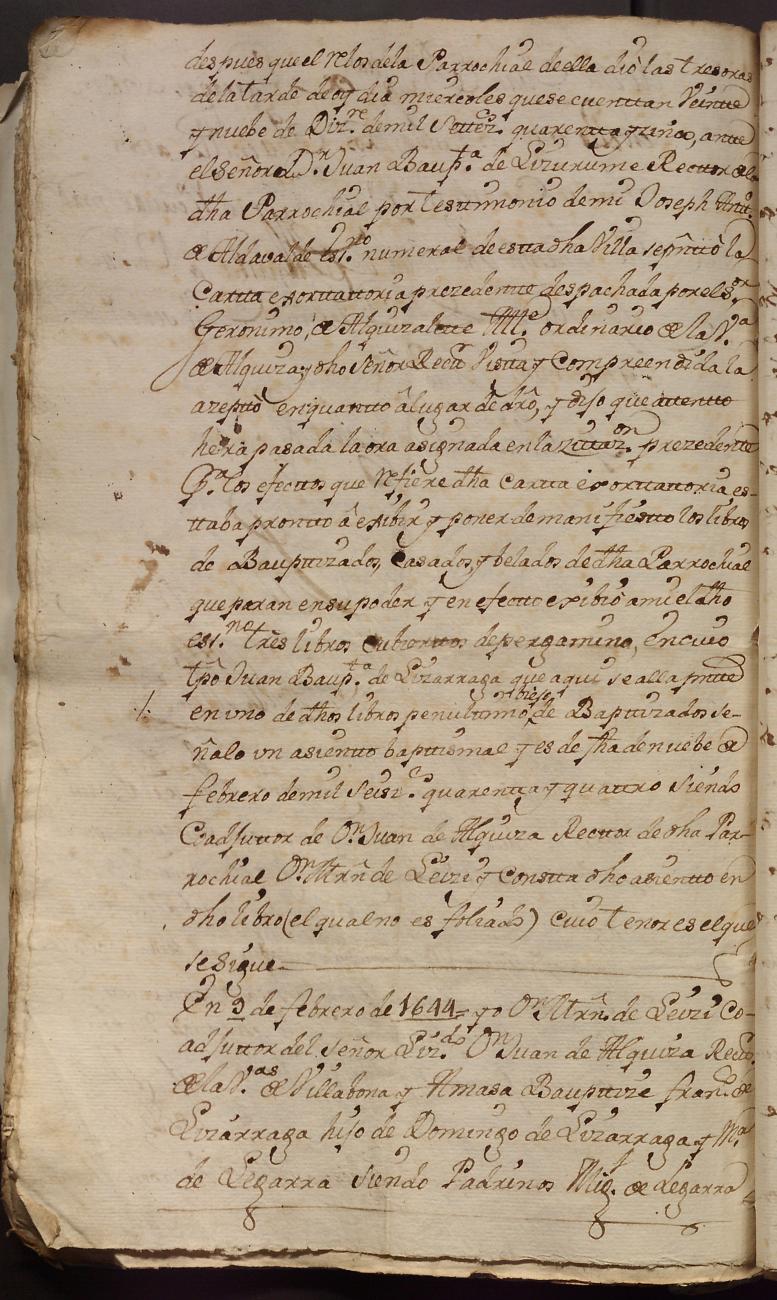 despues que el relos dela Parrochial de ella dió las tres oras
dela tarde de oy dia miercoles que se cuenttan Veintte
y nuebe de Diz.re demil Settez.s quarentta y zinco, antte
el señor D.n Juan Baup.ta de Lizurume Recttor de la
dha Parrochial por testtimonio de mi Joseph Antt.
de Aldavalde es.no numeral de estta dha Villa se presnttó la
Cartta exorttattoria prezedentte despachada por el s.or
Geronimo de Alquizalette Alld.e ordinario de la V.a
de Alquiza y dho señor Recttr Vistta y Compreendida la
azepttó en quantto â lugar de dro, y dijo que attentto
hera pasada la ora asignada en la zittaz.on prezedentte
P.a los efecttos que refiere dha Cartta exorttattoria es-
ttaba prontto â exibir y poner de manifiestto los libros
de Baupttizados, Casados y belados de dha Parrochial
que paran en su poder y en efectto exibió a mi el dho
es.no tres libros cubierttos de pergamino, en cuio
tpo Juan Baup.ta de Lizarraga que aqui se alla pntte
/. en vno de dhos libros penulttimo viejo de Bapttizados se-
ñaló vn asientto bapttismal y es de fha de nuebe de
febrero de mil Seisz.s quarentta y quattro siendo
Coadjuttor de D.n Juan de Alquiza Recttor de dha Par-
rochial D.n Mrn de Leizi y Constta dho asientto en
dho libro (el qual no es foliado) cuio tenor es el que
se sigue
En 9 de febrero de 1644 = yo D.n Mrn. de Leizi Co-
adjuttor del señor Liz.do D.n Juan de Alquiza Rectt.
de la V.as de Villabona y Amasa Baupttize fran.co de
Lizarraga hijo de Domingo de Lizarraga y M.a
de Legarra siendo Padrinos Mig. de Legarra